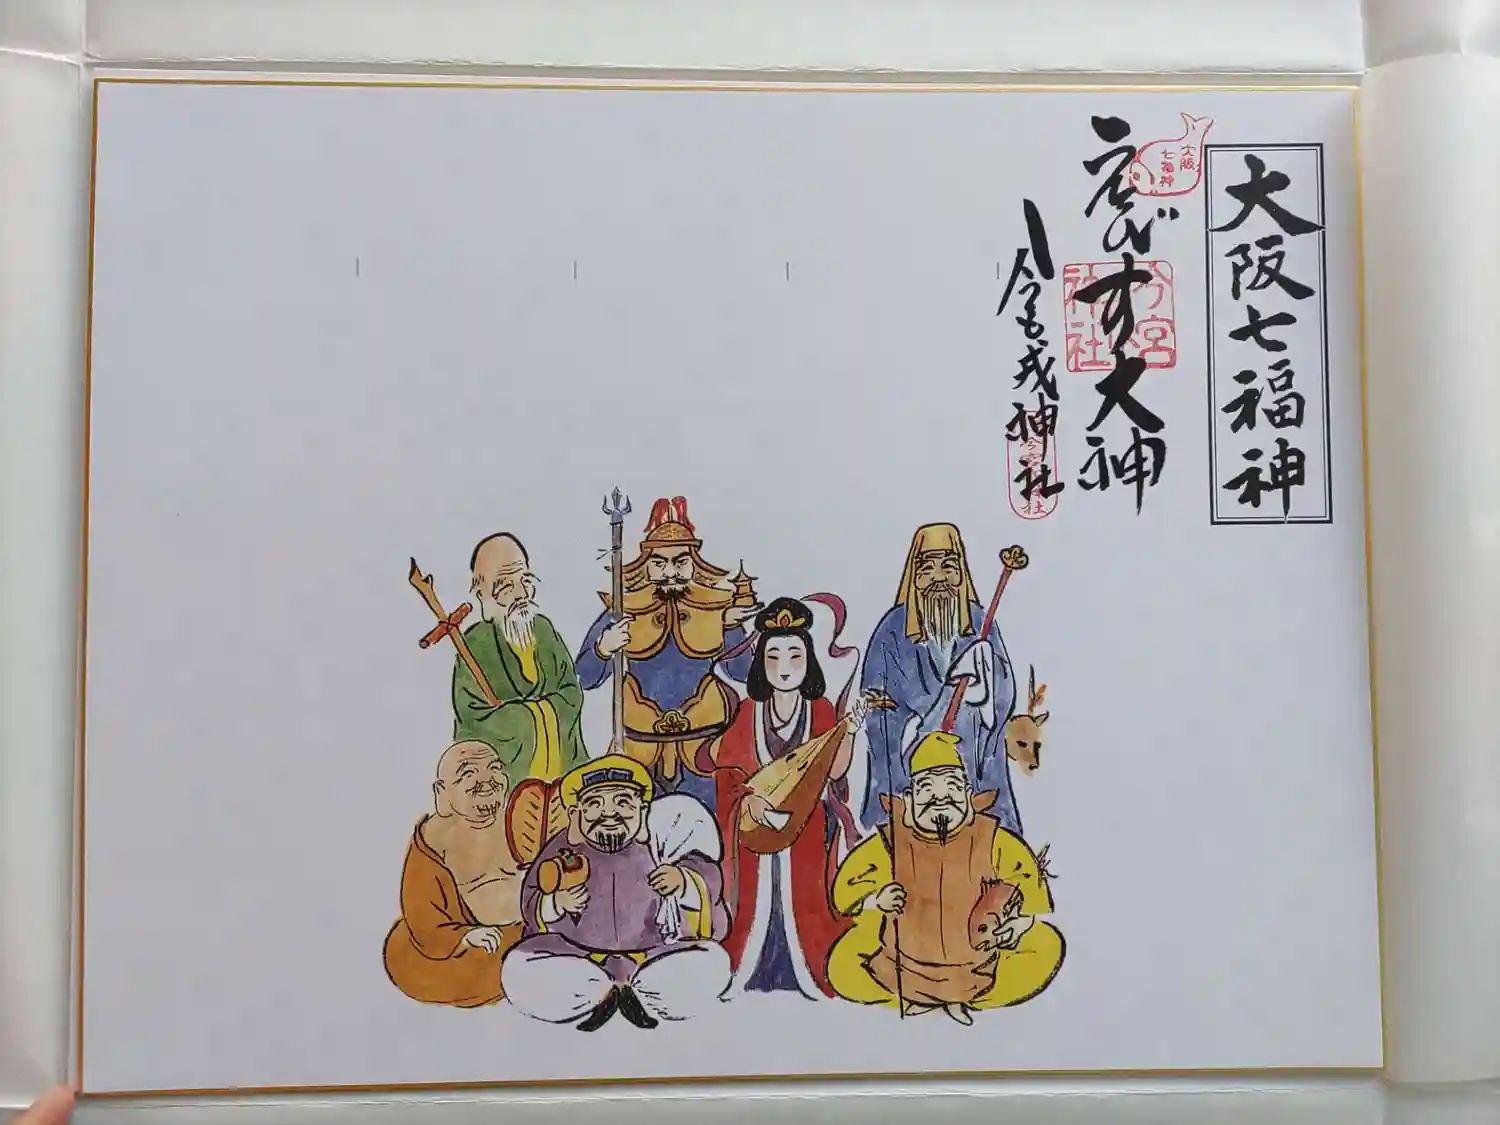 大阪七福神
大阪
七福神
えびす大神
今宮
神社
今宮戎神社